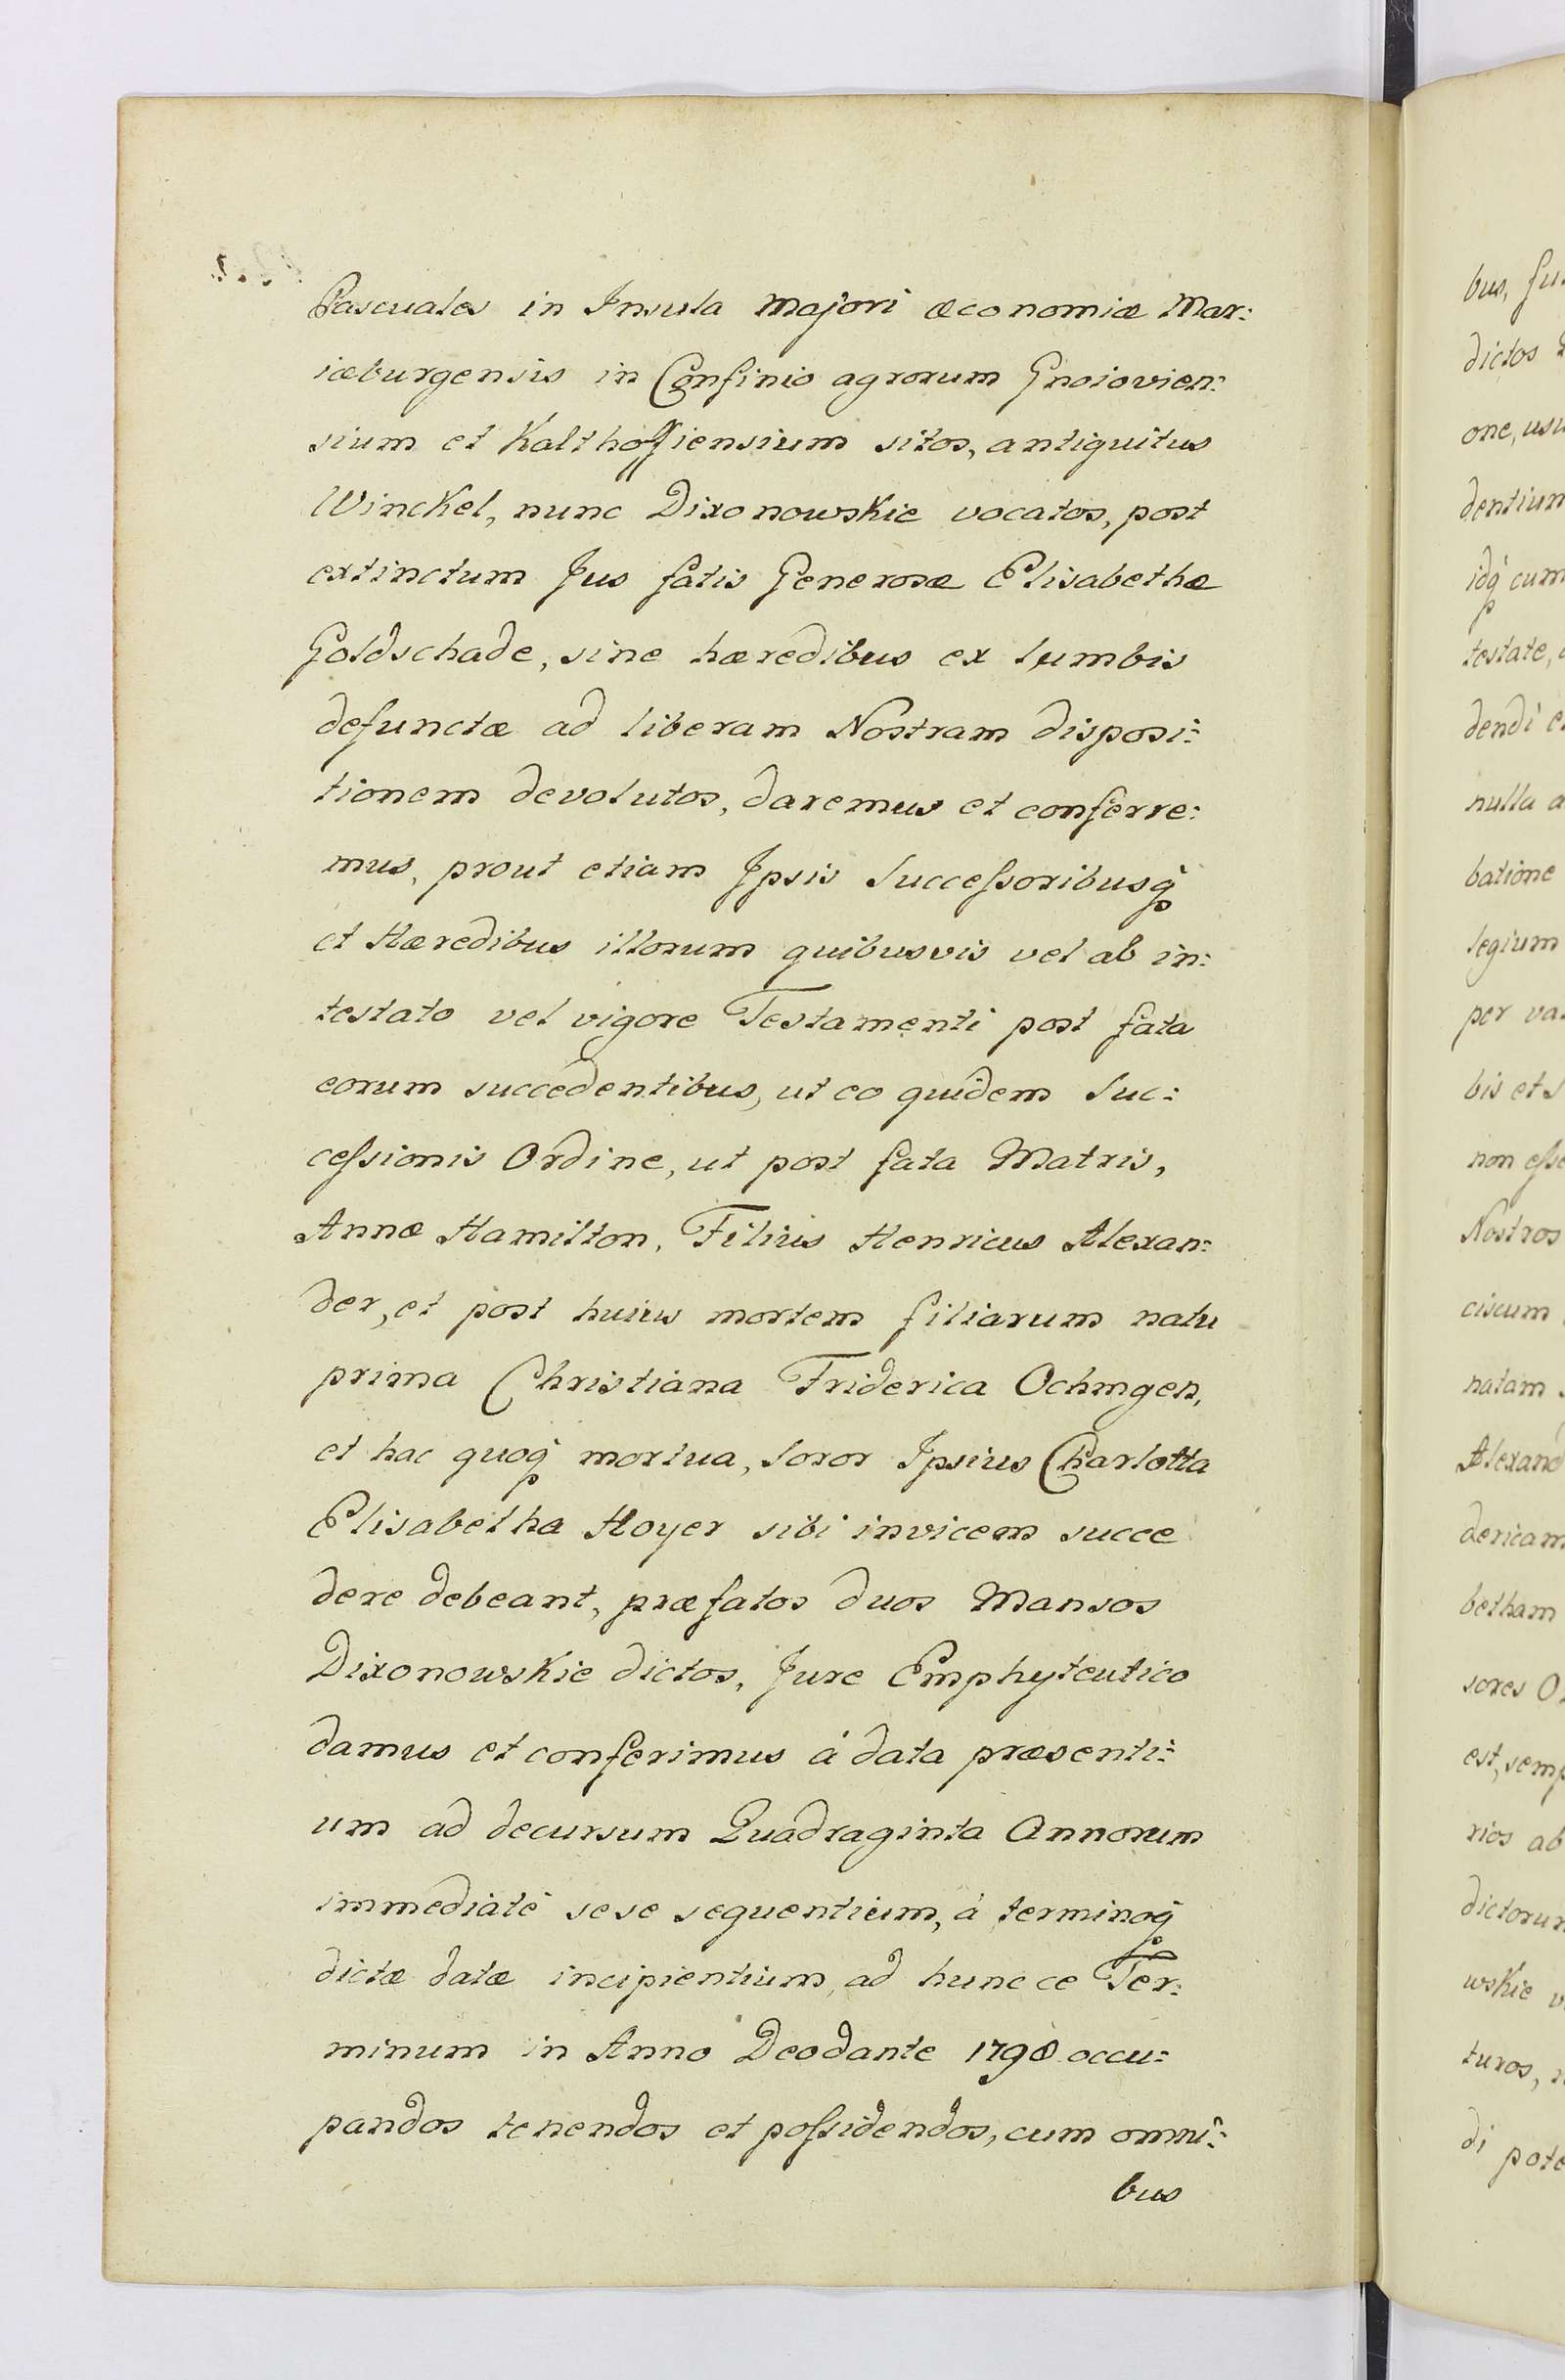 Pascuales in Insula Majori œconomiæ Mar:
iæburgensis in Confinio agrorum Gnoiovien:
sium et Kalthoffiensium sitos, antiquitus
Winckel, nunc Dixonowskie vocatos, post
extinctum Jus fatis Generosæ Elisabethæ
Goldschade, sine hæredibus ex lumbis
defunctæ ad liberam Nostram disposi:
tionem devolutos, daremus et conferre:
mus, prout etiam Ipsis Successoribusq̃
et Hæredibus illorum quibusvis vel ab in:
testato vel vigore Testamenti post fata
eorum succedentibus, ut eo quidem Suc:
cessionis Ordine, ut post fata Matris,
Annæ Hamilton, Filius Henricus Alexan:
der, et post huius mortem filiarum natu
prima Christiana Friderica Ochmgen,
et hac quoq̃ mortua, Soror Ipsius Charlotta
Elisabetha Hoyer sibi invicem succe
dere debeant, præfatos duos Mansos
Dixonowskie dictos, Jure Emphyteutico
damus et conferimus à data præsenti:
um ad decursum Quadraginta Annorum
immediatè sese sequentium, à terminoq̃
dictæ datæ incipientium, ad huncce Ter:
minum in Anno Deodante 1798 occu:
pandos tenendos et possidendos, cum omni:
bus
bus,
dictos
one,
dentium
idq̃ cum
testate,
dendi
nulla
batione
legium
per
bis et
non esse
Nostros
ciscum
natam
Alexand
dericam
betham
sores
est,
rios ab
dictorum
wskie
turos,
di